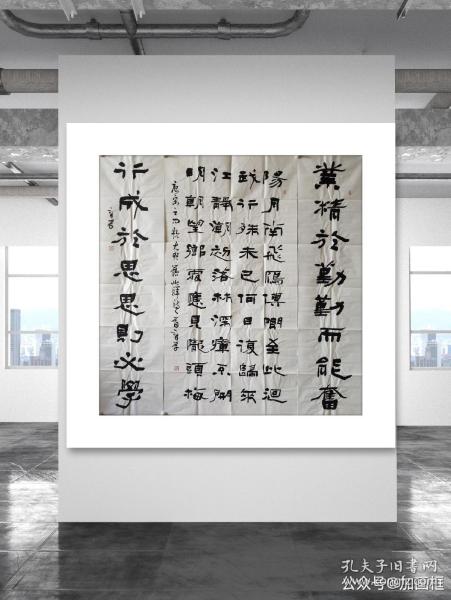 業精於勤勤而能奮
陽月南飛鴈傳聞至此迴
我行殊未已何日復歸來
江靜潮初落林深瘴不開
明朝望鄉處應見隴頭梅
行成於思思則必學
孔夫子旧书网
公众号@加画框